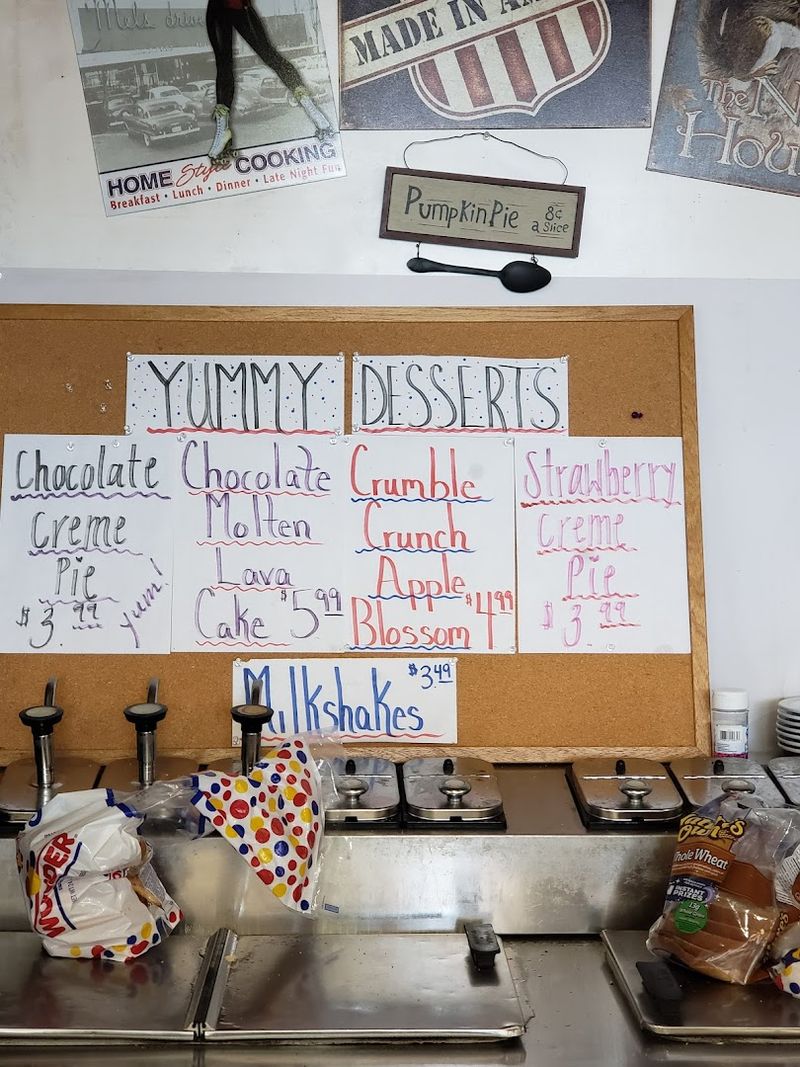 Mels drive
HOME Style COOKING
Breakfast • Lunch • Dinner • Late Night Fun
MADE IN
The
Pumpkin Pie 8¢
a Slice
YUMMY DESSERTS
Chocolate
Creme
Pie
$3.99
Yum!
Chocolate
Molten
Lava
Cake $5.99
Crumble
Crunch
Apple
Blossom $4.99
Strawberry
Creme
Pie
$3.99
Milkshakes $3.49
WONDER
Whole Wheat
INSTANT
PRIZES